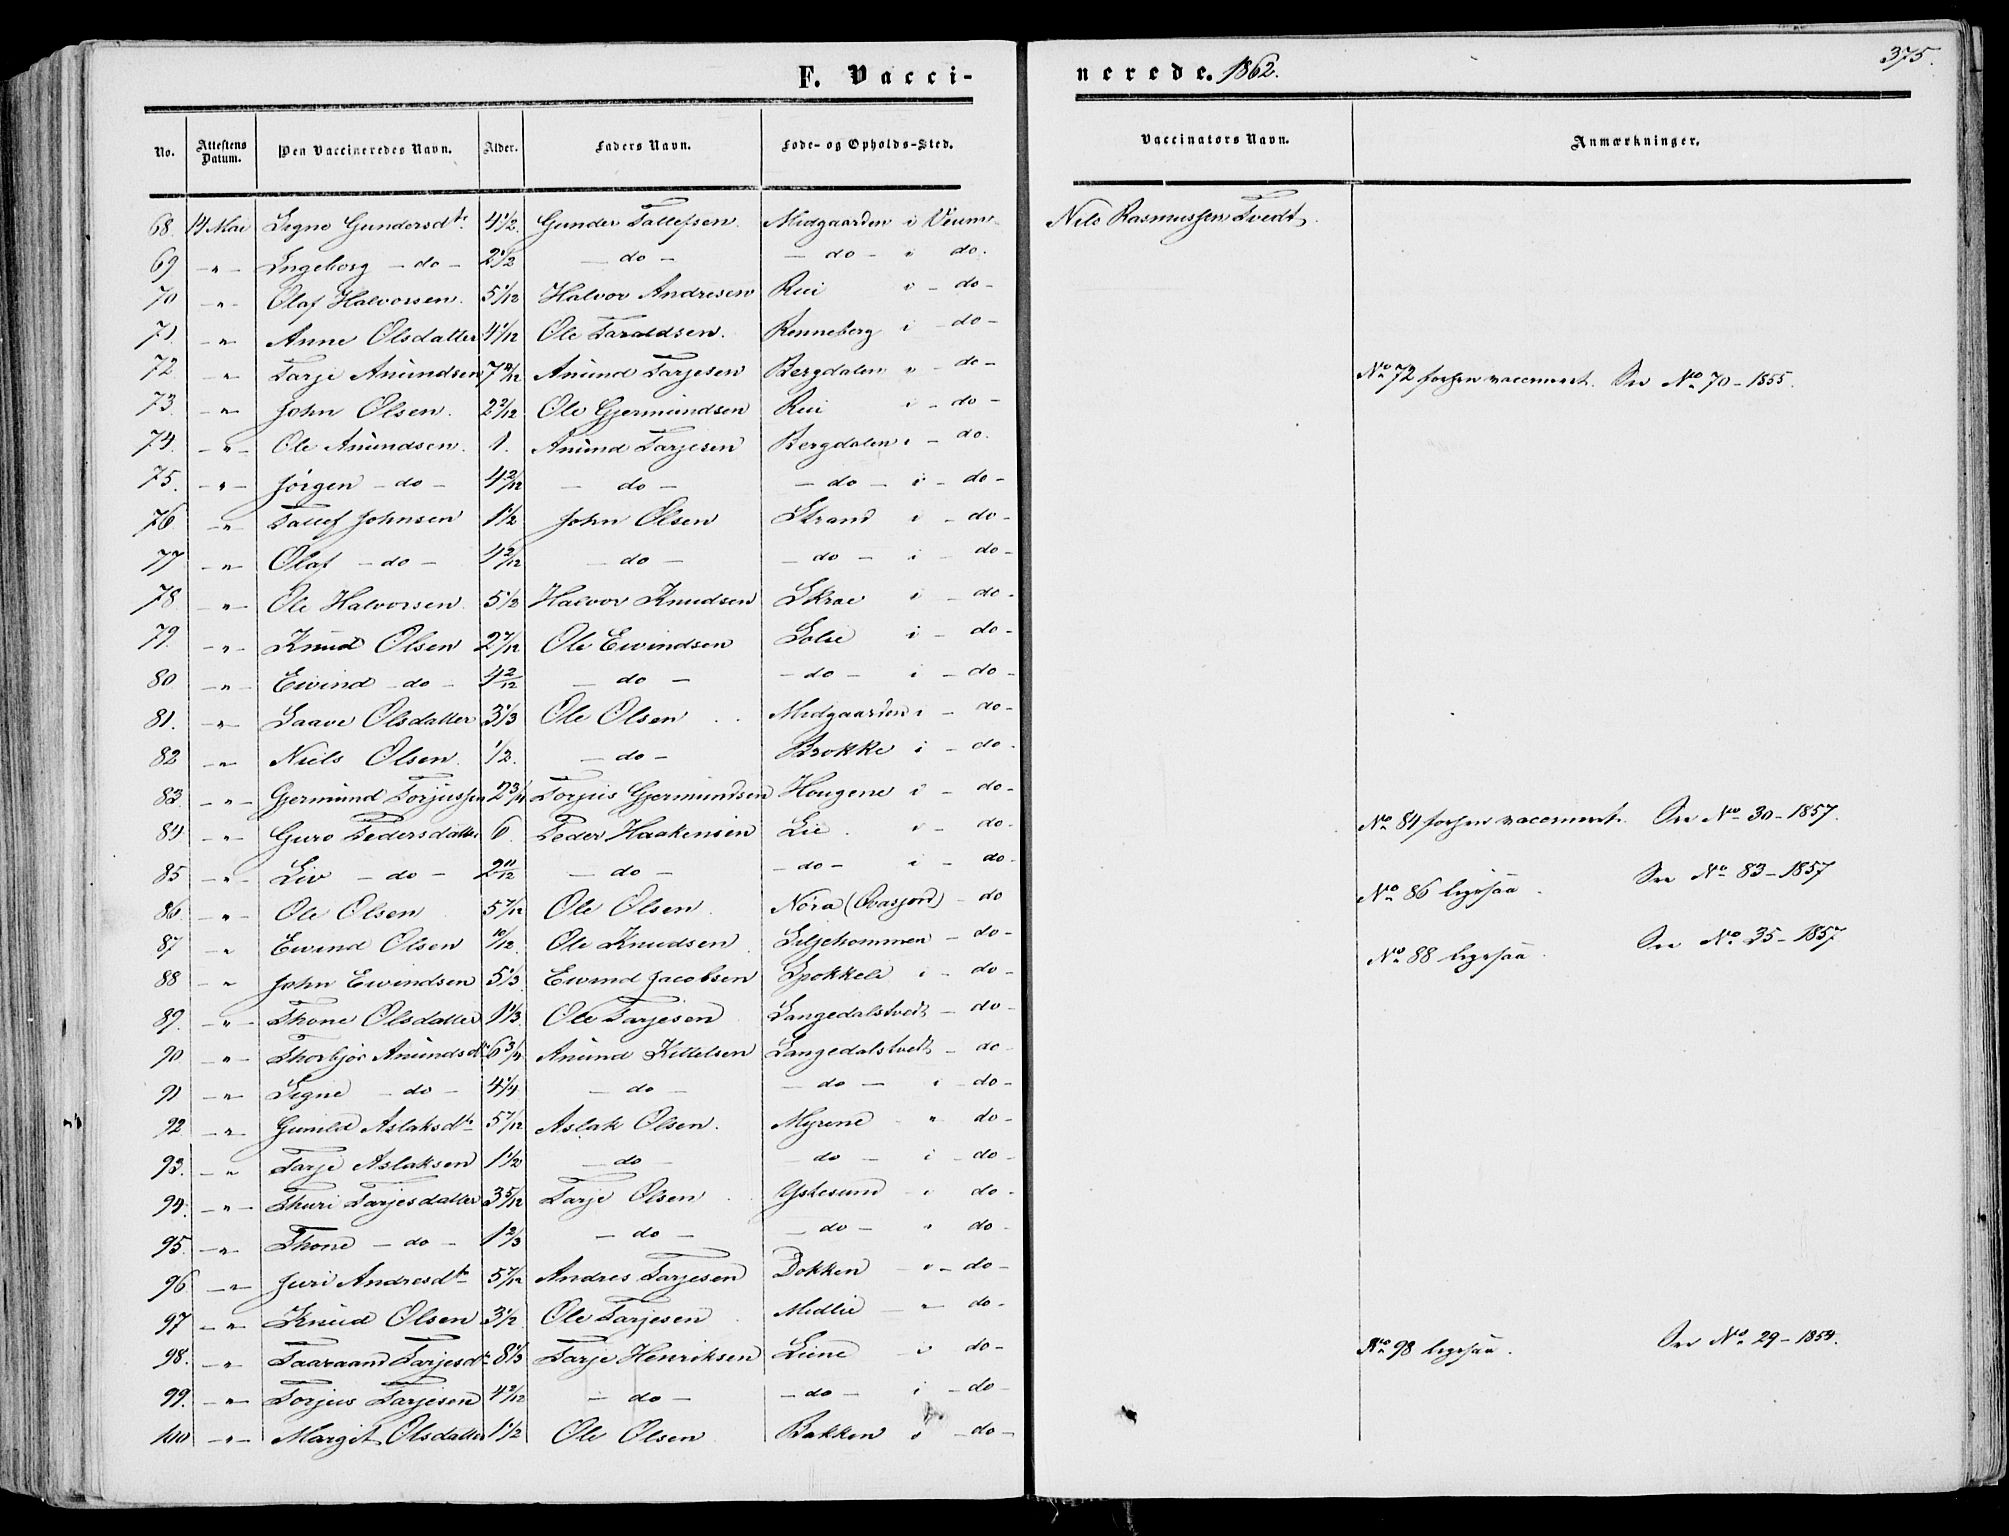 375.
F. Vacci-nerede. 1862.
No. Attestens Datum. Den Vaccineredes Navn. Alder. Faders Navn. Føde- og Opholds-Sted. Vaccinators Navn. Anmærkninger.
68. 14 Mai Signe Gundersdtr 4 1/2. Gunder Tallefsen. Midgaarden i Veum Nils Rasmussen Tvedt.
69 - " - Ingeborg - do - 2 1/2 - do - - do - i do.
70 - " - Olaf Halvorsen. 5 1/12 Halvor Andresen Rui i - do -
71. - " - Anne Olsdatter 4 1/12 Ole Taraldsen. Renneberg i - do -
72 - " - Tarje Anundsen 7 11/12 Anund Tarjesen Bergdalen " - do - No 72 forhen vaccineret. See No 70 - 1855.
73. - " - John Olsen. 2 2/12 Ole Gjermundsen Rui i - do -
74. - " - Ole Anundsen. 1. Anund Tarjesen Bergdalen i - do.
75. - " - Jørgen - do - 4 2/12 - do - - do - i - do -
76 - " - Tallef Johnsen 1 1/2 John Olsen Strand i - do -
77. - " - Olaf - do - 4 2/12 - do - - do - i - do -
78 - " - Ole Halvorsen. 5 1/2 Halvor Knudsen Skrae i - do -
79. - " - Knud Olsen 2 7/12 Ole Eivindsen i - do -
80 - " - Eivind - do - 4 2/12 - do - - do - i - do -
81. - " - Saave Olsdatter 3 1/3 Ole Olsen Midgaarden i - do -
82 - " - Niels Olsen. 1/2. - do - Brokke i - do -
83. - " - Gjermund Torjussen 2 3/4 Torjus Gjermundsen Hougene i - do -
84. - " - Guro Pedersdatter 6 Peder Haakensen Lie. i - do - No 84 forhen vaccineret. See No 30 - 1857.
85 - " - Liv - do - 2 11/12 - do - - do - i - do -
86. - " - Ole Olsen 5 7/12 Ole Olsen. Nora (Qvasjord) - do No 86 ligesaa. See No 83 - 1857
87 - " Eivind Olsen 10/12. Ole Knudsen Liljehommen - do -
88 - " John Eivindsen 5 1/3 Eivind Jacobsen Spokkeli i - do - No 88 ligesaa. See No 35 - 1857
89. - " - Thone Olsdatter 1 1/3. Ole Tarjesen Langedalstvedt - do -
90 - " - Thorbjør Anundsdtr 6 3/4 Anund Kittelsen Langedalstvedt - do -
91 - " - Signe - do - 4 1/4 - do - - do - i - do -
92 - " - Gunild Aslaksdtr 5 7/12 Aslak Olsen. Myrene " do -
93. - " Tarje Aslaksen 1 1/2 - do - - do - i - do -
94. - " - Thuri Tarjesdatter 3 5/12 Tarje Olsen Ystesund - i do -
95. - " - Thone - do - 1 2/3 - do - - do - " do -
96 - " - Juri Andresdtr 5 7/12 Andres Tarjesen Dokken - i - do -
97 - " - Knud Olsen 3 1/2. Ole Tarjesen Midlie - " - do -
98. - " - Taaraand Tarjesdtr 8 1/3 Tarje Henriksen Liene - i do - No 98 ligesaa. See No 29 - 1854.
99. - " - Torjus Tarjesen 4 2/12 - do - - do - i - do -
100 - " - Margit Olsdatter 1 1/2 Ole Olsen Bakken i - do -